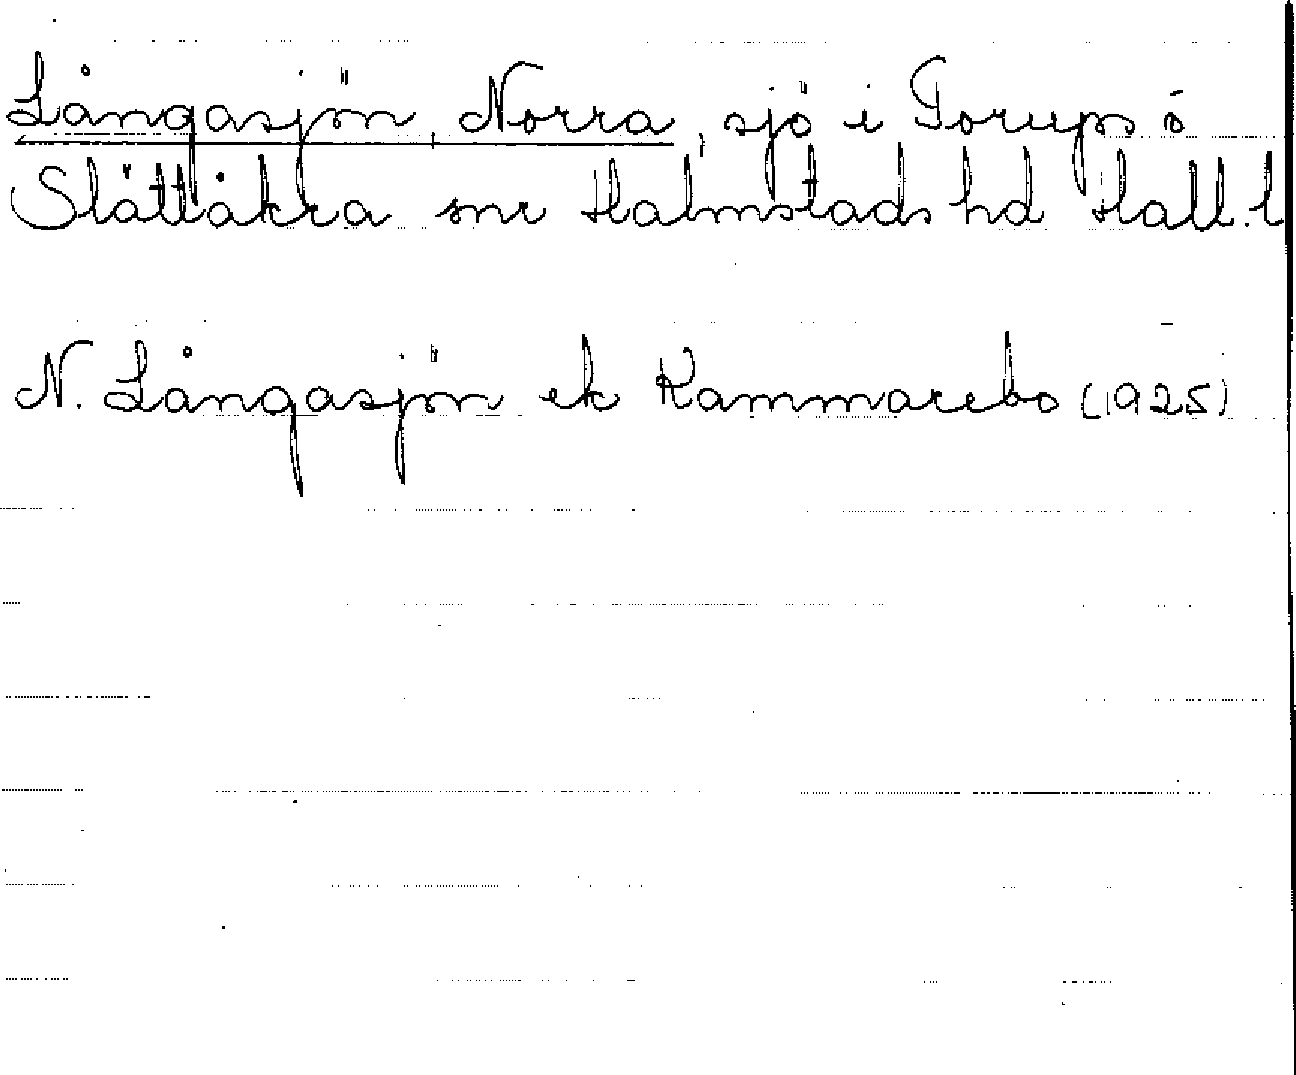 Långasjön, Norra, sjö i Torups o
Slättåkra snr Halmstads hd Hall. l
N. Långasjön ek Kammarebo (1925)